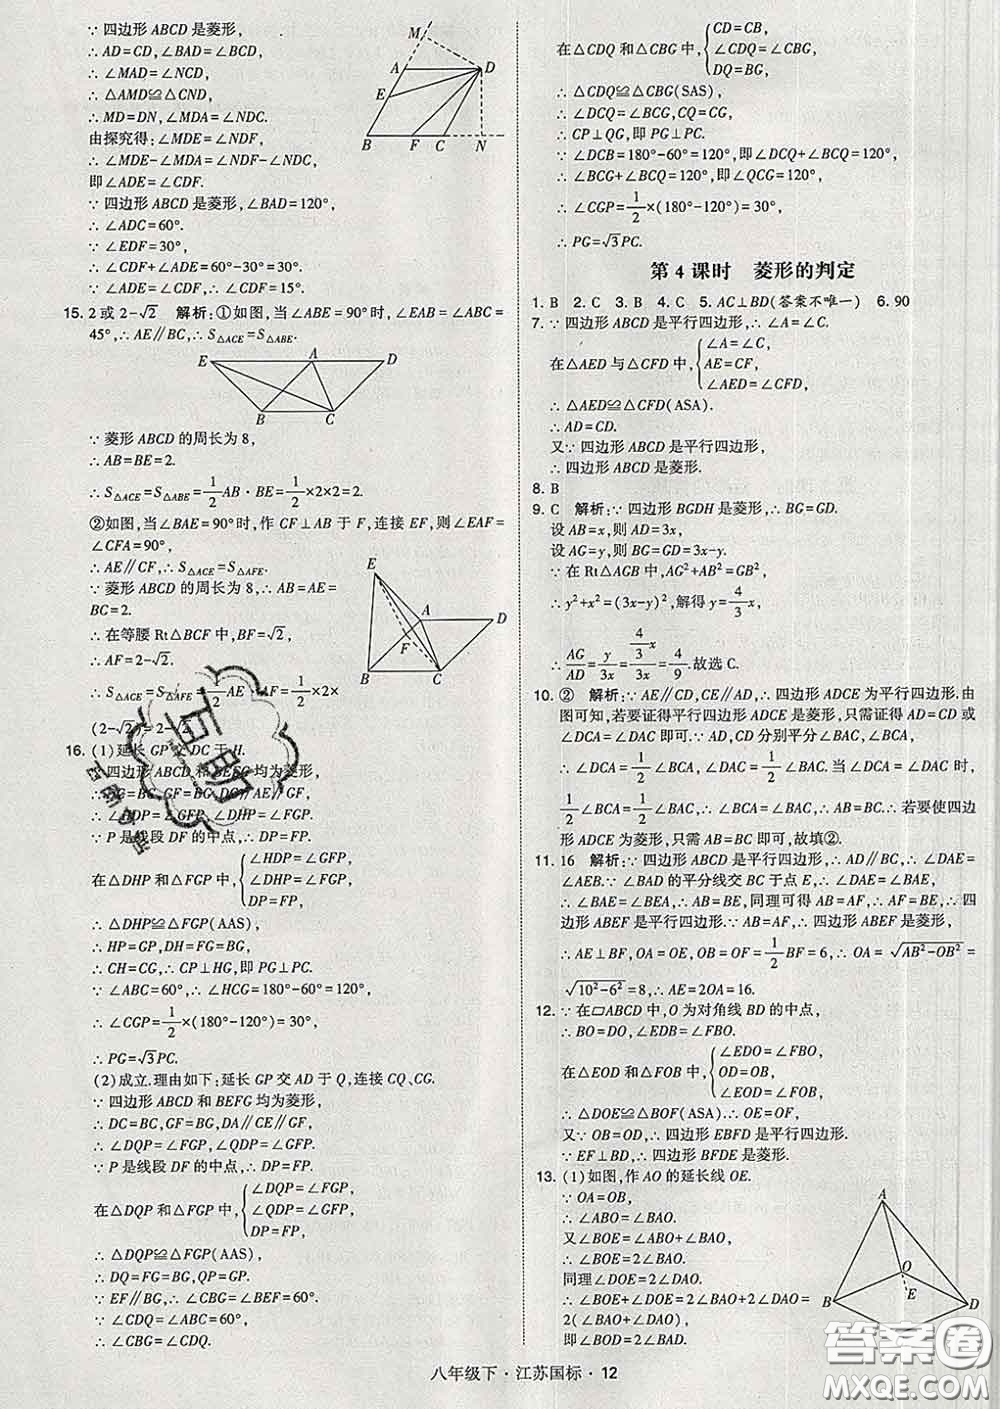 ∵ 四边形 ABCD 是菱形,
∴ AD=CD,∠BAD=∠BCD,
∴ ∠MAD=∠NCD,
∴ △AMD≌△CND,
∴ MD=DN,∠MDA=∠NDC.
由探究得:∠MDE=∠NDF,
∴ ∠MDE-∠MDA=∠NDF-∠NDC,
即∠ADE=∠CDF.
∵ 四边形 ABCD 是菱形,∠BAD=120°,
∴ ∠ADC=60°.
∵ ∠EDF=30°,
∴ ∠CDF+∠ADE=60°-30°=30°.
∴ ∠ADE=∠CDF=15°.
M
A D
E
B F C N
15. 2 或 2-√2 解析:①如图,当∠ABE=90°时,∠EAB=∠ABC=
45°,∴ AE∥BC,∴ S△ACE=S△ABE.
E A D
B C
∵ 菱形 ABCD 的周长为 8,
∴ AB=BE=2.
∴ S△ACE=S△ABE=1/2 AB·BE=1/2×2×2=2.
②如图,当∠BAE=90°时,作 CF⊥AB 于 F,连接 EF,则∠EAF
=∠CFA=90°,
∴ AE∥CF,∴ S△ACE=S△AFE.
∵ 菱形 ABCD 的周长为 8,∴ AB=AE=
BC=2.
∴ 在等腰 Rt△BCF 中,BF=√2,
∴ AF=2-√2.
∴ S△ACE=S△AFE=1/2 AE·AF=1/2×2×
(2-√2)=2-√2.
E
A D
F
B C
16. (1)延长 GP 交 DC 于 H.
∵ 四边形 ABCD 和 BEFG 均为菱形,
∴ DC=BC,GF=BG,DC∥AE∥GF,
∴ ∠HDP=∠GFP,∠DHP=∠FGP.
∵ P 是线段 DF 的中点,∴ DP=FP.
在△DHP 和△FGP 中,{∠HDP=∠GFP,
∠DHP=∠FGP,
DP=FP,
∴ △DHP≌△FGP(AAS),
∴ HP=GP,DH=FG=BG,
∴ CH=CG,∴ CP⊥HG,即 PG⊥PC.
∵ ∠ABC=60°,∴ ∠HCG=180°-60°=120°,
∴ ∠CGP=1/2×(180°-120°)=30°,
∴ PG=√3PC.
(2)成立.理由如下:延长 GP 交 AD 于 Q,连接 CQ、CG.
∵ 四边形 ABCD 和 BEFG 均为菱形,
∴ DC=BC,GF=BG,DA∥CE∥GF,
∴ ∠DQP=∠FGP,∠QDP=∠GFP.
∵ P 是线段 DF 的中点,∴ DP=FP,
在△DQP 和△FGP 中,{∠DQP=∠FGP,
∠QDP=∠GFP,
DP=FP,
∴ △DQP≌△FGP(AAS),
∴ DQ=FG=BG,QP=GP.
∵ EF∥BG,∴ ∠CBG=∠BEF=60°.
∵ ∠CDQ=∠ABC=60°,
∴ ∠CBG=∠CDQ.
在△CDQ 和△CBG 中,{CD=CB,
∠CDQ=∠CBG,
DQ=BG,
∴ △CDQ≌△CBG(SAS),
∴ ∠DCQ=∠BCG,CQ=CG,
∴ CP⊥QG,即 PG⊥PC.
∵ ∠DCB=180°-60°=120°,即∠DCQ+∠BCQ=120°,
∴ ∠BCG+∠BCQ=120°,即∠QCG=120°,
∴ ∠CGP=1/2×(180°-120°)=30°,
∴ PG=√3PC.
第 4 课时 菱形的判定
1. B 2. C 3. B 4. C 5. AC⊥BD(答案不唯一) 6. 90
7. ∵ 四边形 ABCD 是平行四边形,∴ ∠A=∠C.
在△AED 与△CFD 中,{∠A=∠C,
AE=CF,
∠AED=∠CFD,
∴ △AED≌△CFD(ASA).
∴ AD=CD.
又∵ 四边形 ABCD 是平行四边形,
∴ 四边形 ABCD 是菱形.
8. B
9. C 解析:∵ 四边形 BGDH 是菱形,∴ BG=GD.
设 AB=x,则 AD=3x,
设 AG=y,则 BG=GD=3x-y.
∵ 在 Rt△AGB 中,AG²+AB²=GB²,
∴ y²+x²=(3x-y)²,解得 y=4/3 x,
∴ AG/AD=y/3x=(4/3 x)/3x=4/9.故选 C.
10. ② 解析:∵ AE∥CD,CE∥AD,∴ 四边形 ADCE 为平行四边形.由
图可知,若要证得平行四边形 ADCE 是菱形,只需证得 AD=CD 或
∠DCA=∠DAC 即可.∵ AD,CD 分别平分∠BAC,∠BCA,
∴ ∠DCA=1/2∠BCA,∠DAC=1/2∠BAC. 当∠DCA=∠DAC 时,
1/2∠BCA=1/2∠BAC,∴ ∠BCA=∠BAC.∴ 若要使四边
形 ADCE 为菱形,只需 AB=BC 即可,故填②.
11. 16 解析:∵ 四边形 ABCD 是平行四边形,∴ AD∥BC,∴ ∠DAE=
∠AEB.∵ ∠BAD 的平分线交 BC 于点 E,∴ ∠DAE=∠BAE,
∴ ∠BAE=∠BEA,∴ AB=BE,同理可得 AB=AF,∴ AF=BE,∴ 四
边形 ABEF 是平行四边形.∵ AB=AF,∴ 四边形 ABEF 是菱形,
∴ AE⊥BF,OA=OE,OB=OF=1/2 BF=6,∴ OA=√(AB²-OB²)=
√(10²-6²)=8,∴ AE=2OA=16.
12. ∵ 在▱ABCD 中,O 为对角线 BD 的中点,
∴ BO=DO,∠EDB=∠FBO.
在△EOD 和△FOB 中,{∠EDO=∠FBO,
OD=OB,
∠EOD=∠FOB,
∴ △DOE≌△BOF(ASA).∴ OE=OF,
又∵ OB=OD,∴ 四边形 EBFD 是平行四边形.
∵ EF⊥BD,∴ 四边形 BFDE 是菱形.
13. (1)如图,作 AO 的延长线 OE.
∵ OA=OB,
∴ ∠ABO=∠BAO.
又∠BOE=∠ABO+∠BAO,
∴ ∠BOE=2∠BAO.
同理∠DOE=2∠DAO.
∴ ∠BOE+∠DOE=2∠BAO+2∠DAO=
2(∠BAO+∠DAO),
即∠BOD=2∠BAD.
A
O
E
B D
八年级下·江苏国标·12
互助
答案圈
MXQE.COM